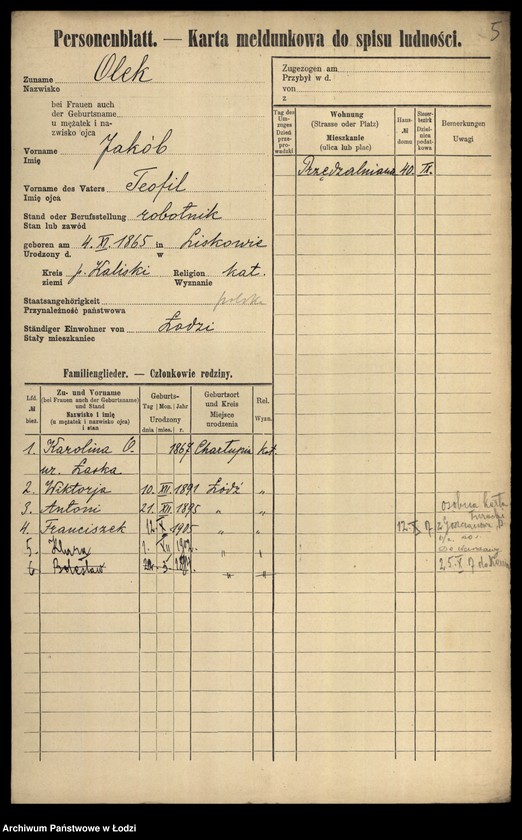 5
Personenblatt. — Karta meldunkowa do spisu ludności.
Zuname Olek
Nazwisko
bei Frauen auch
der Geburtsname
u mężatek i na-
zwisko ojca
Vorname Jakób
Imię
Vorname des Vaters Teofil
Imię ojca
Stand oder Berufsstellung robotnik
Stan lub zawód
geboren am 4. XI. 1865 in Liskowie
Urodzony d. w
Kreis p. Kaliski Religion kat.
ziemi Wyznanie
Staatsangehörigkeit polska
Przynależność państwowa
Ständiger Einwohner von Łodzi
Stały mieszkaniec
Zugezogen am
Przybył w d.
von
z
Tag des Um-zuges
Dzień prze-prowadzki
Wohnung
(Strasse oder Platz)
Mieszkanie
(ulica lub plac)
Haus-
№
domu
Steuer-bezirk
Dziel-nica podat-kowa
Bemerkungen
Uwagi
Przędzalniana 40. IX.
Familienglieder. — Członkowie rodziny.
Lfd.
№
bież.
Zu- und Vorname
(bei Frauen auch der Geburtsname)
und Stand
Nazwisko i imię
(u mężatek i nazwisko ojca)
i stan
Geburts-
Tag Mon. Jahr
Urodzony
dnia mies. r.
Geburtsort
und Kreis
Miejsce
urodzenia
Rel.
Wyzn.
1. Karolina O. 1867 Charłupia kat.
ur. Łaska
2. Wiktorja 10. XII. 1891 Łódź "
3. Antoni 21. XII. 1895 " "
4. Franciszek 12. X 1905 " " 12. X 17
5.
6. Bolesław " "
osobna karta
25. X 17
Archiwum Państwowe w Łodzi